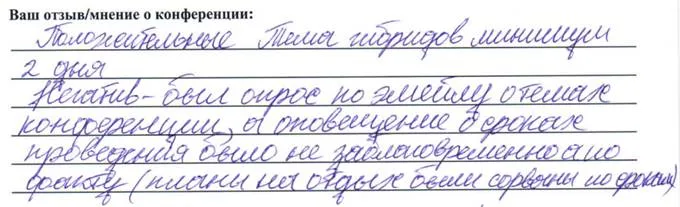 Ваш отзыв/мнение о конференции:
Положительные Тема гибридов минимум
2 дня
Негатив - был опрос по эмейлу о темах
конференции, а оповещение о сроках
проведения было не заблаговременно а по
факту (планы на отдых были сорваны по срокам)